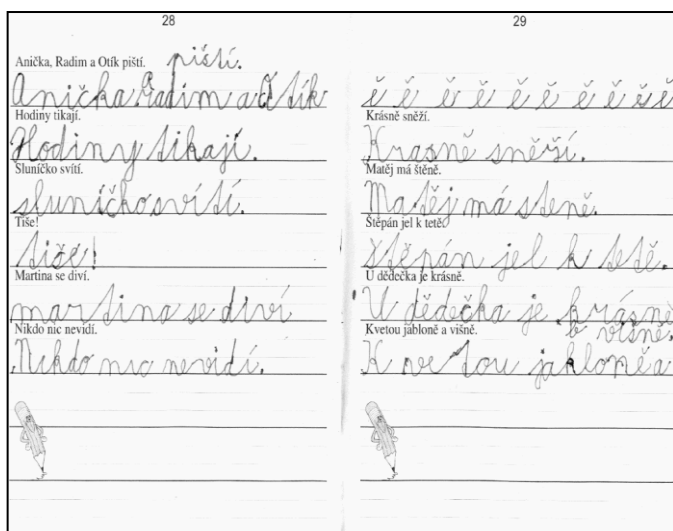 28
Anička, Radim a Otík piští.
piští.
Anička Radim a Otík
Hodiny tikají.
Hodiny tikají.
Sluníčko svítí.
sluníčko svítí.
Tiše!
tiše!
Martina se diví.
martina se diví
Nikdo nic nevidí.
Nikdo nic nevidí.
29
ě ě ě ě ě ě ě ě ě ě
Krásně sněží.
Krasně sněží.
Matěj má štěně.
Matěj má steně.
Štěpán jel k tetě.
štěpán jel k tetě.
U dědečka je krásně.
U dědečka je krásně
Kvetou jabloně a višně.
višně.
Kvetou jabloněa